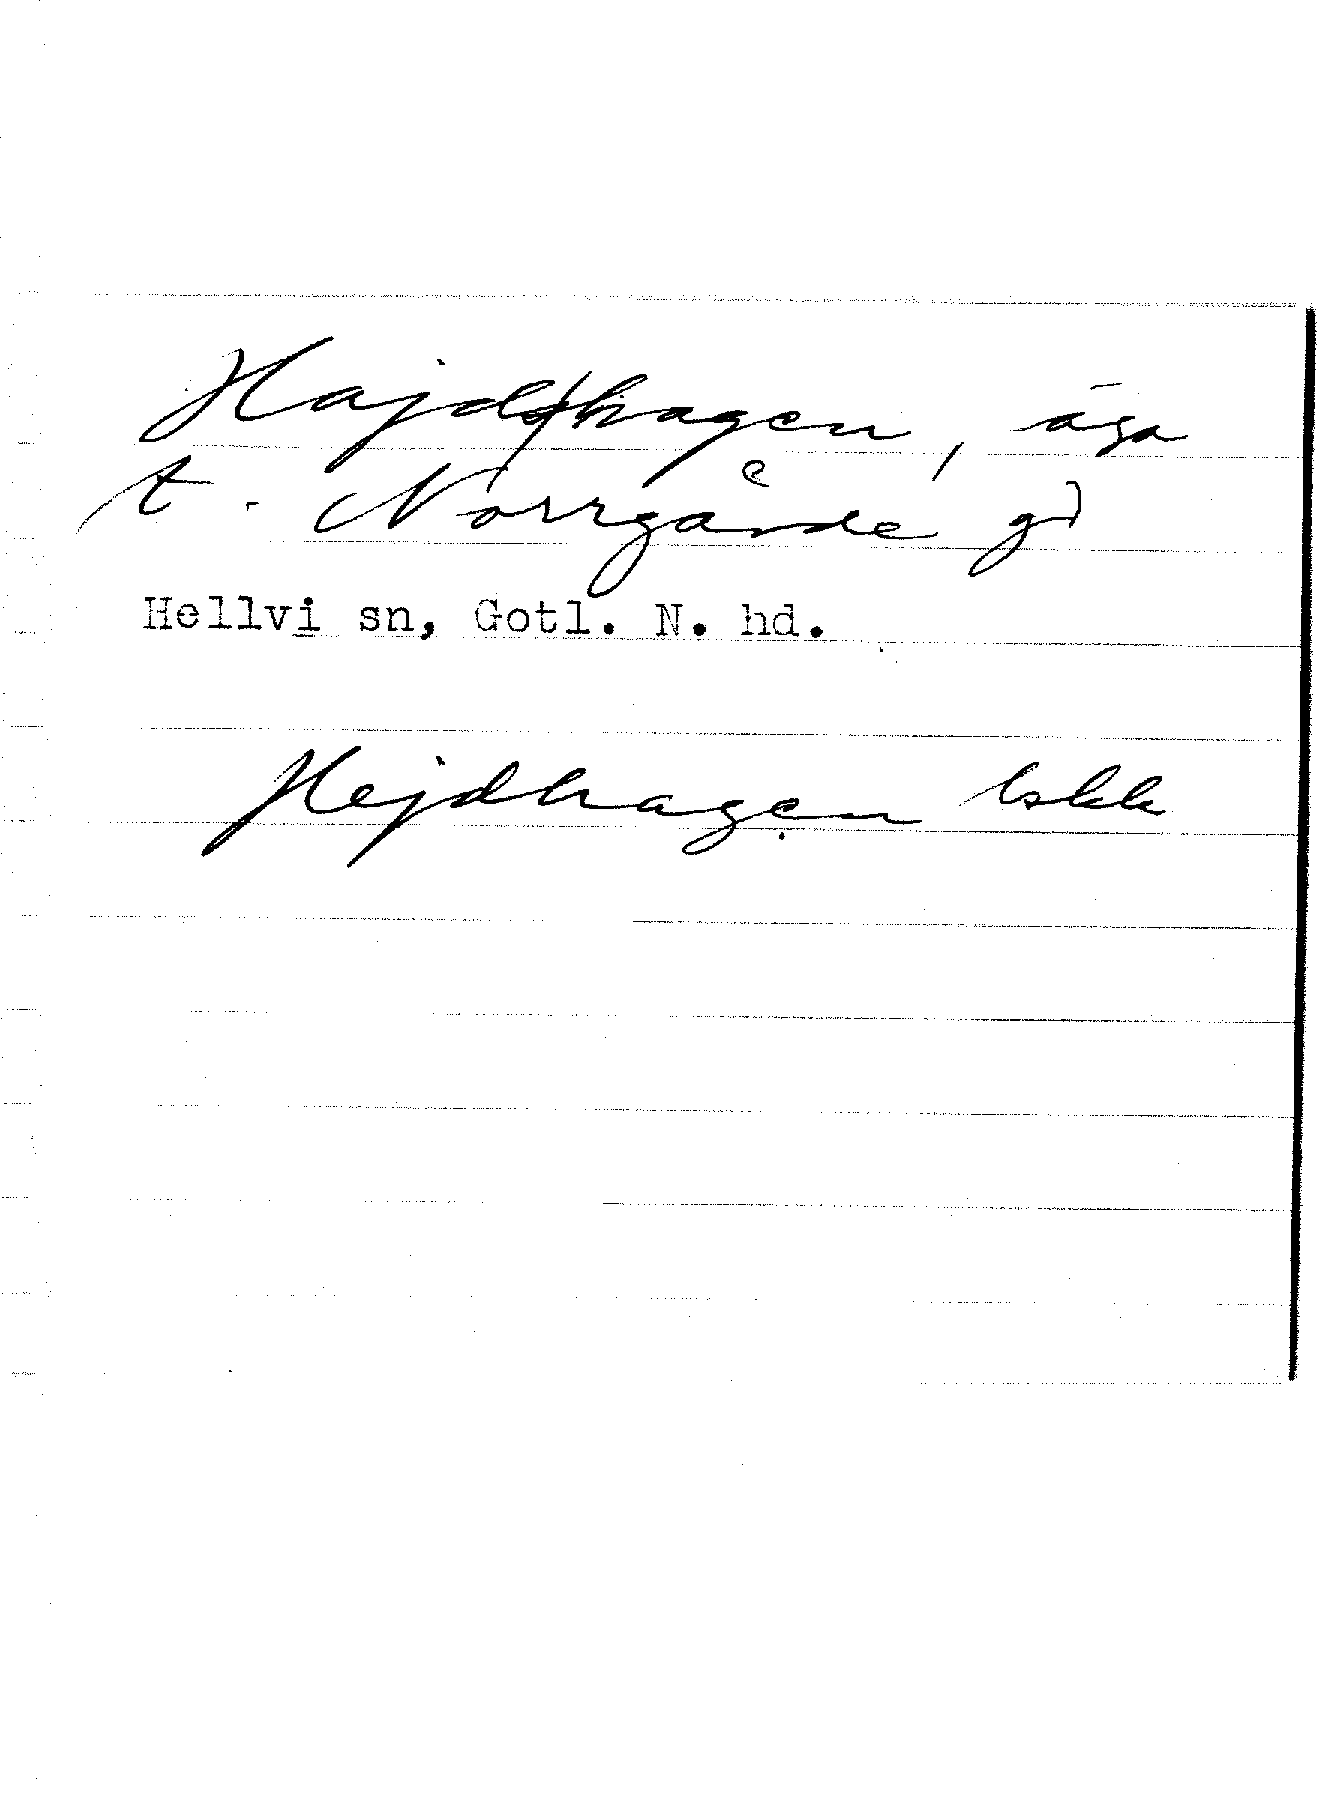 Hajdhagen, äga
t. Norrgårde gd
Hellvi sn, Gotl. N. hd.
Hejdhagen lskk